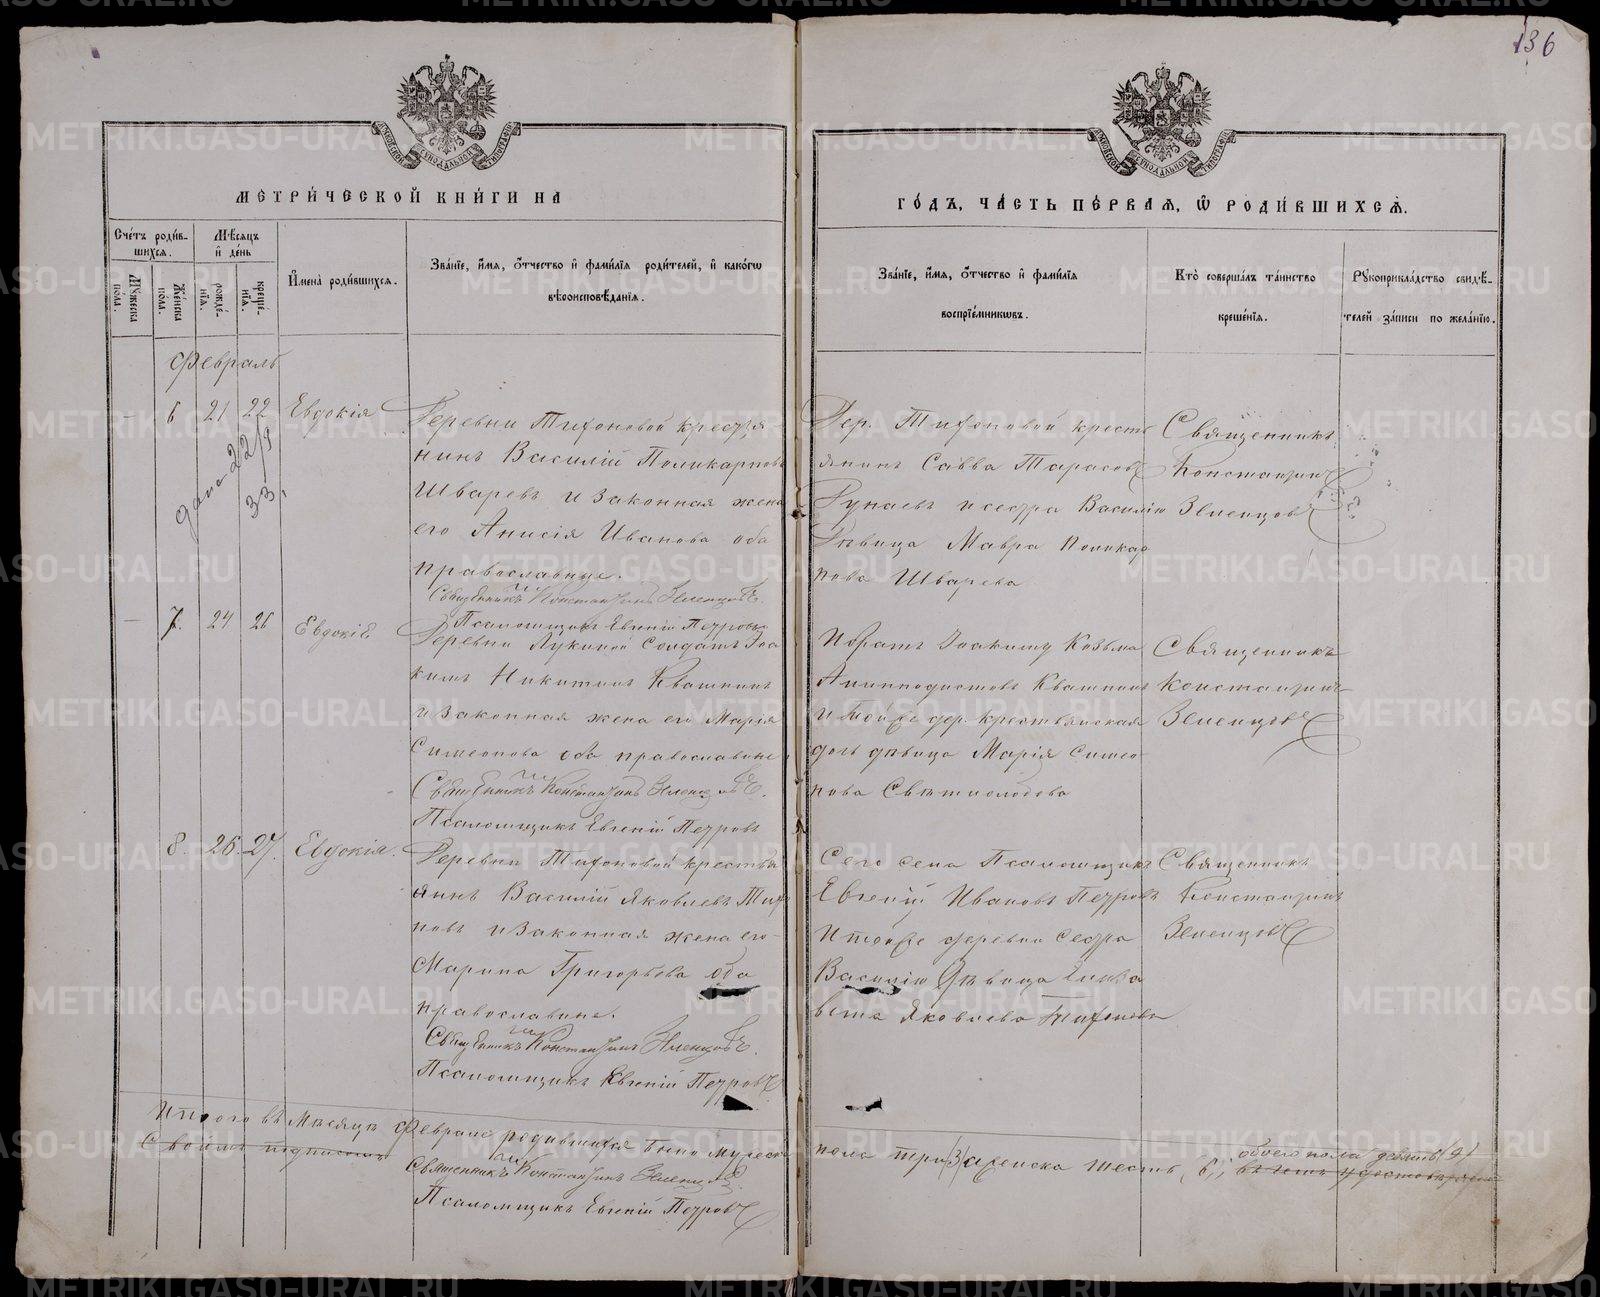 136
МОСКОВСКОЙ СѴНОДАЛЬНОЙ ТИПОГРАФІИ
МОСКОВСКОЙ СѴНОДАЛЬНОЙ ТИПОГРАФІИ
МЕТРИ́ЧЕСКОЙ КНИ́ГИ НА
ГО́ДЪ, ЧА́СТЬ ПЕ́РВАЯ, Ѡ РОДИ́ВШИХСЯ.
Сче́тъ роди́в-
шихся.
Мѣ́сяцъ
и҆ де́нь
Мꙋ́жеска
пола.
Же́нска
пола.
рожде́-
нїѧ.
креще́-
нїѧ.
И҆мена̀ роди́вшихся.
Зва́нїе, и҆́мѧ, ѻ҆́тчество и҆ фами́лїѧ роди́телей, и҆ како́гѡ
вѣроисповѣ́данїѧ.
Зва́нїе, и҆́мѧ, ѻ҆́тчество и҆ фами́лїѧ
воспрїе́мникѡвъ.
Кто̀ соверша́лъ та́инство
креще́нїѧ.
Рꙋкоприкла́дство свидѣ́-
телей за́писи по жела́нїю.
Февраль
6 21 22 Евдокія
Деревни Тифоновой крестья
нинъ Василій Поликарповъ
Шваревъ и законная жена
его Анисія Иванова оба
православные.
Священникъ Константинъ Земенцовъ.
Псаломщикъ Евгеній Петровъ
Дер. Тифоновой кресть
янинъ Савва Тарасовъ
Рунаевъ и сестра Василію
Дѣвица Мавра Поликар
пова Шварева
Священникъ
Константинъ
Земенцовъ
дано 22/9
33.
7. 24 26 Евдокіѣ
Деревни Лукиной Солдатъ Іоа
кимъ Никитинъ Квашнинъ
и законная жена его Марія
Симеонова оба православные
Священникъ Константинъ Земенцовъ.
Псаломщикъ Евгеній Петровъ
И братъ Іоакиму Козьма
Квашнинъ
и тойже дер. крестьянская
дочь дѣвица Марія Симео
нова
Священникъ
Константинъ
Земенцовъ
8. 26. 27. Евдокія.
Деревни Тифоновой крестья
янинъ Василій Яковлевъ Тиф
новъ и законная жена его
Марина Григорьева оба
православные.
Священникъ Константинъ Земенцовъ.
Псаломщикъ Евгеній Петровъ
Сего села Псаломщикъ
Евгеній Ивановъ Петровъ
и тойже деревни сестра
Василію Дѣвица Елиза
вета Яковлева Тифонова
Священникъ
Константинъ
Земенцовъ
Итого въ мѣсяцѣ Февралѣ родившихся было мужеска пола три /3/ женска шесть /6/, обоего пола девять /9/
въ чемъ и удостовѣряемъ
своимъ подписомъ
Священникъ Константинъ Земенцовъ.
Псаломщикъ Евгеній Петровъ
METRIKI.GASO-URAL.RU